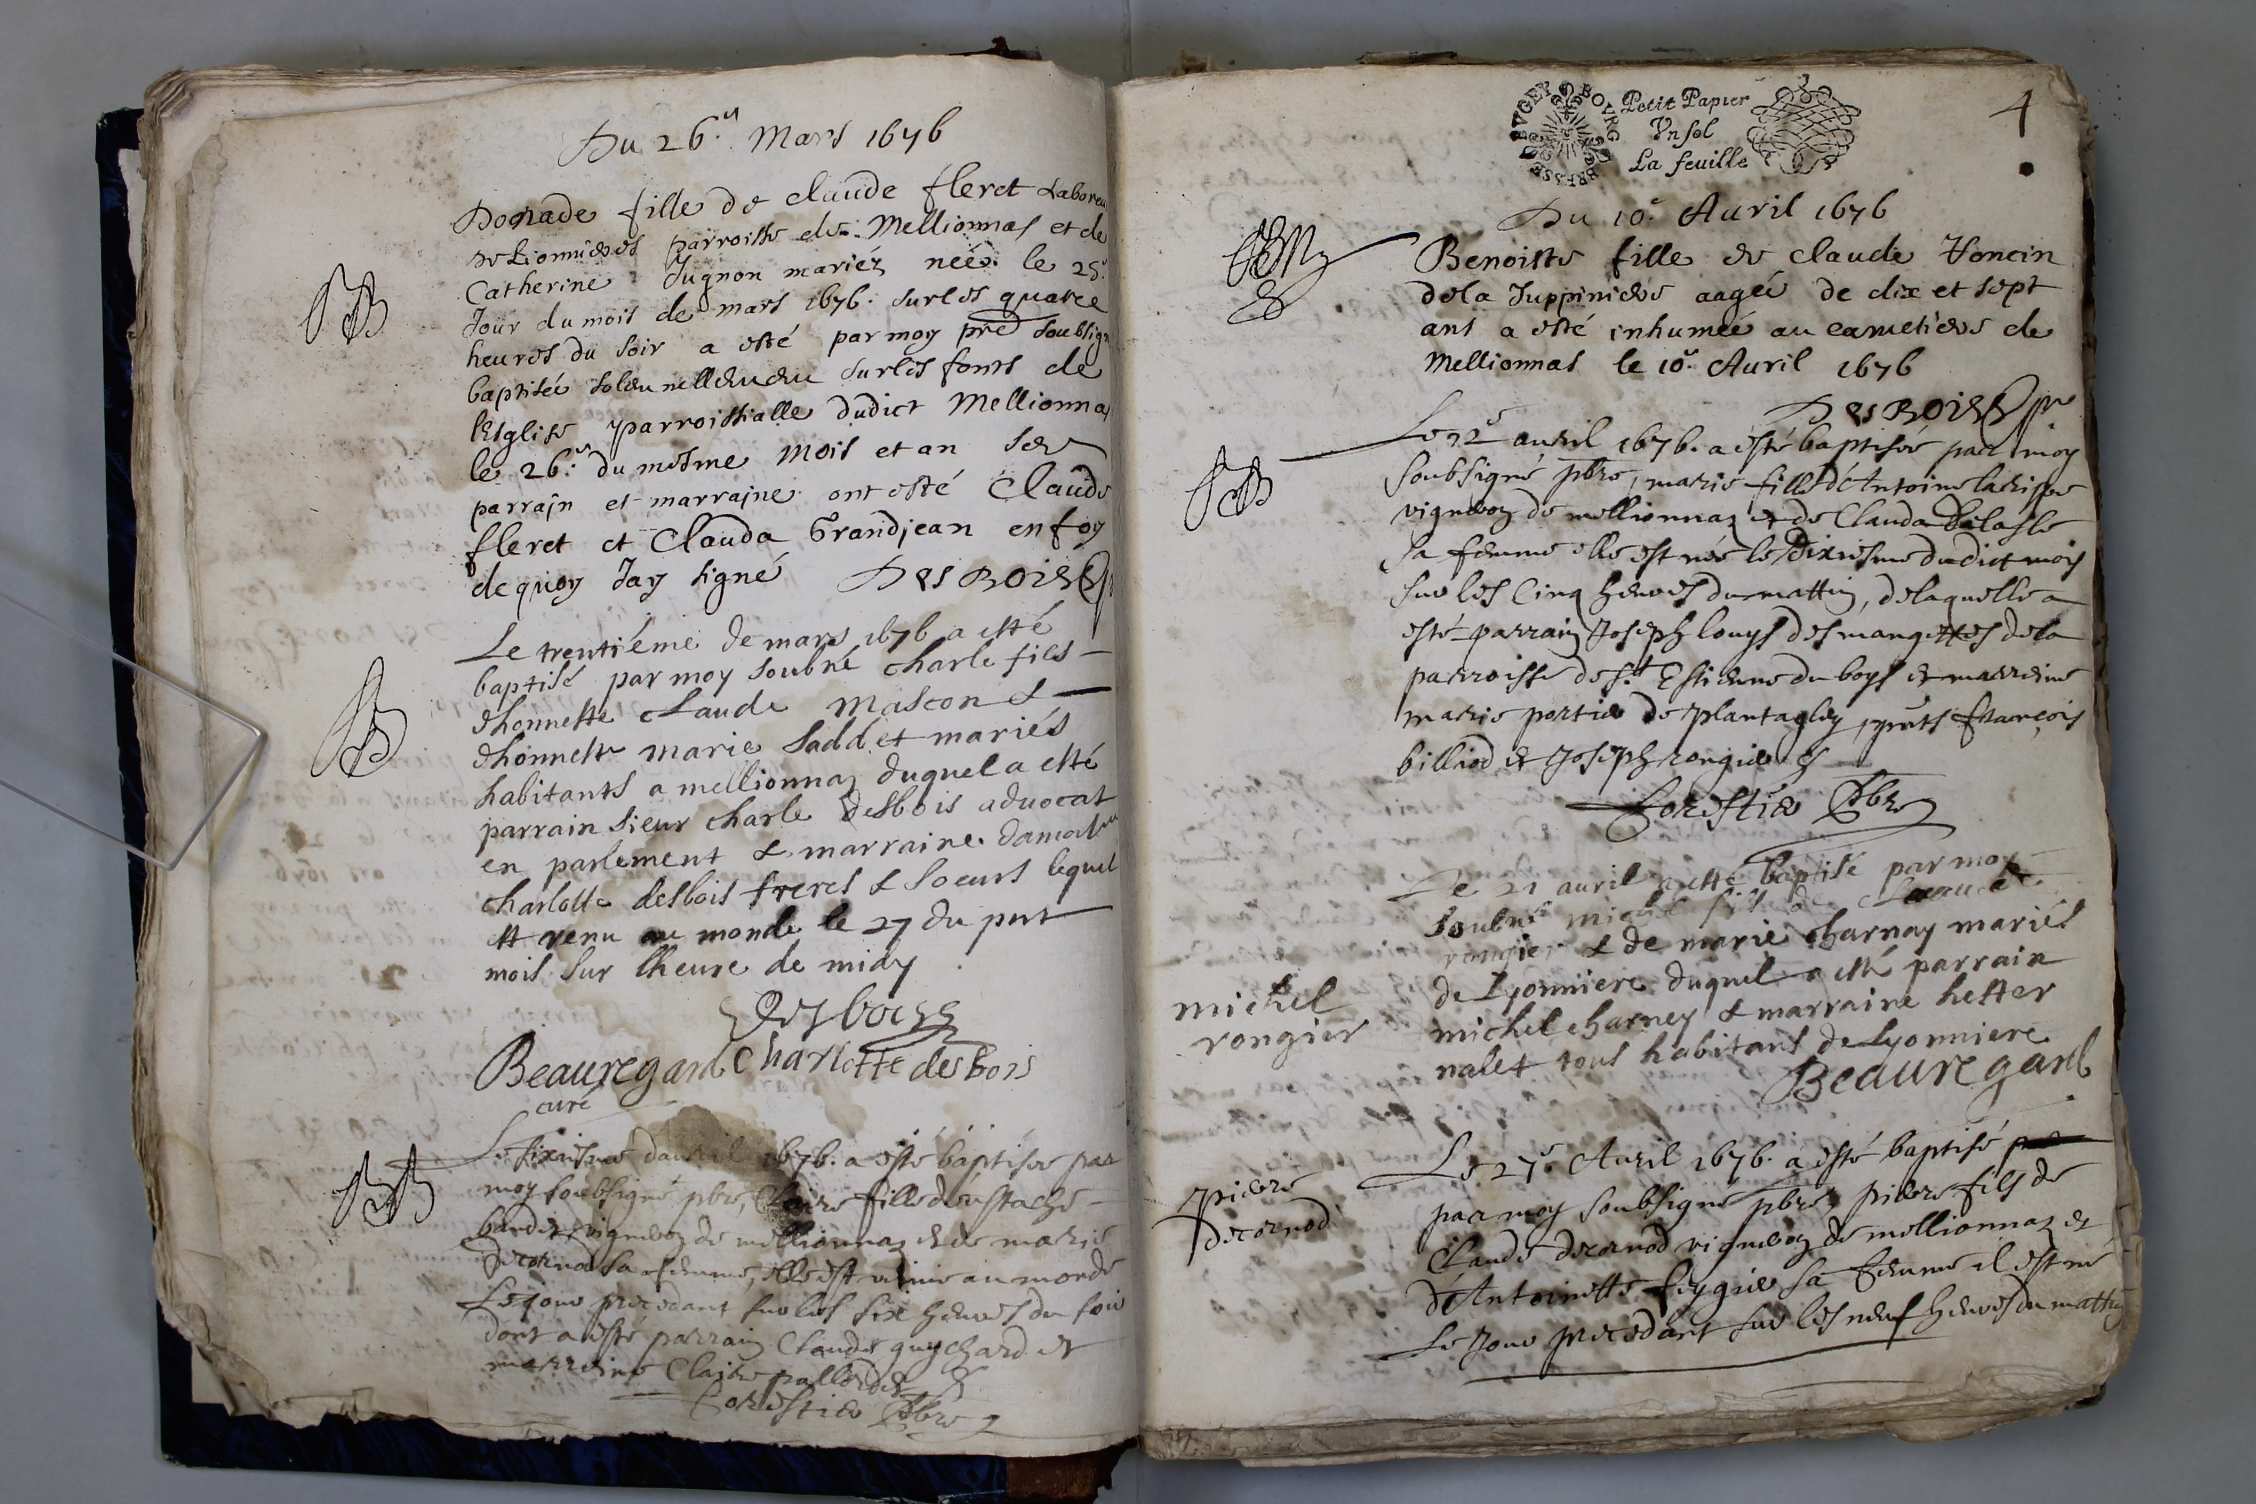 Du 26.e Mars 1676
Donade fille de claude fleret Laboreu
de Lionnieres parroisse de Mellionnas et de
Catherine Jugnon mariéz née le 25.e
Jour du mois de mars 1676. sur les quatre
heures du soir a esté par moy pre soubsign
baptisée solennellement sur les fonts de
lEsglise parroissialle dudict Mellionnas
le 26.e du mesme mois et an son
parrajn et marrajne ont esté Claude
fleret et Clauda Grandjean en foy
de quoy Jay signé DesBois
Le trentiéme de mars 1676 a esté
baptisé par moy soubné charle fils
dhonneste claude mascon &
dhonneste marie saddet mariés
habitants a mellionnaz duquel a esté
parrain sieur charle desbois advocat
en parlement & marraine damoiselle
charlotte desbois freres & soeurs lequel
est venu au monde le 27 du pnt
mois sur lheure de midy
Desbois
Beauregard Charlotte des bois
curé
Le sixiesme d'avril 1676. a esté baptisée par
moy soubsigné pbre, Claire fille d'Eustache
vigneron de mellionnaz et de marie
decornod sa femme, elle est venue au monde
le jour precedant sur les six heures du soir
dont a esté parrain Claude guychard et
marreine Claire
Forestier Pbre
Petit Papier
Vn sol
La feuille
BVGEY BOVRG BRESSE
4
Du 10.e Auril 1676
Benoiste fille de claude Voncin
de la Juppiniere aagée de dix et sept
ans a esté inhumée au cametiere de
Mellionnas le 10.e Auril 1676
DesBois pre
Le 12e auril 1676. a esté baptisée par moy
soubsigné pbre, marie fille d'Antoine larippe
vigneron de mellionnaz et de Clauda
sa femme elle est née le dixiesme dudict mois
sur les Cinq heures du mattin, de laquelle a
esté parrain Joseph louys des mangettes de la
parroisse de St. Estienne du boys et marreine
marie portier de plantaglay, pnts François
billiod et Joseph rongier
Forestier Pbre
Le 21 auril a esté baptisé par moy
soubné michel fils de claude
rongier & de marie charnay mariés
de Lyonniere duquel a esté parrain
michel charney & marraine hester
nalet tous habitans de Lyonniere
Beauregard
michel
rongier
Le 27.e Auril 1676. a esté baptisé
par moy soubsigné pbre, pierre fils de
Claude decornod vigneron de mellionnaz et
d'Antoinette feyguier sa femme il est né
le Jour precedant sur les neuf heures du mattin
pierre
decornod